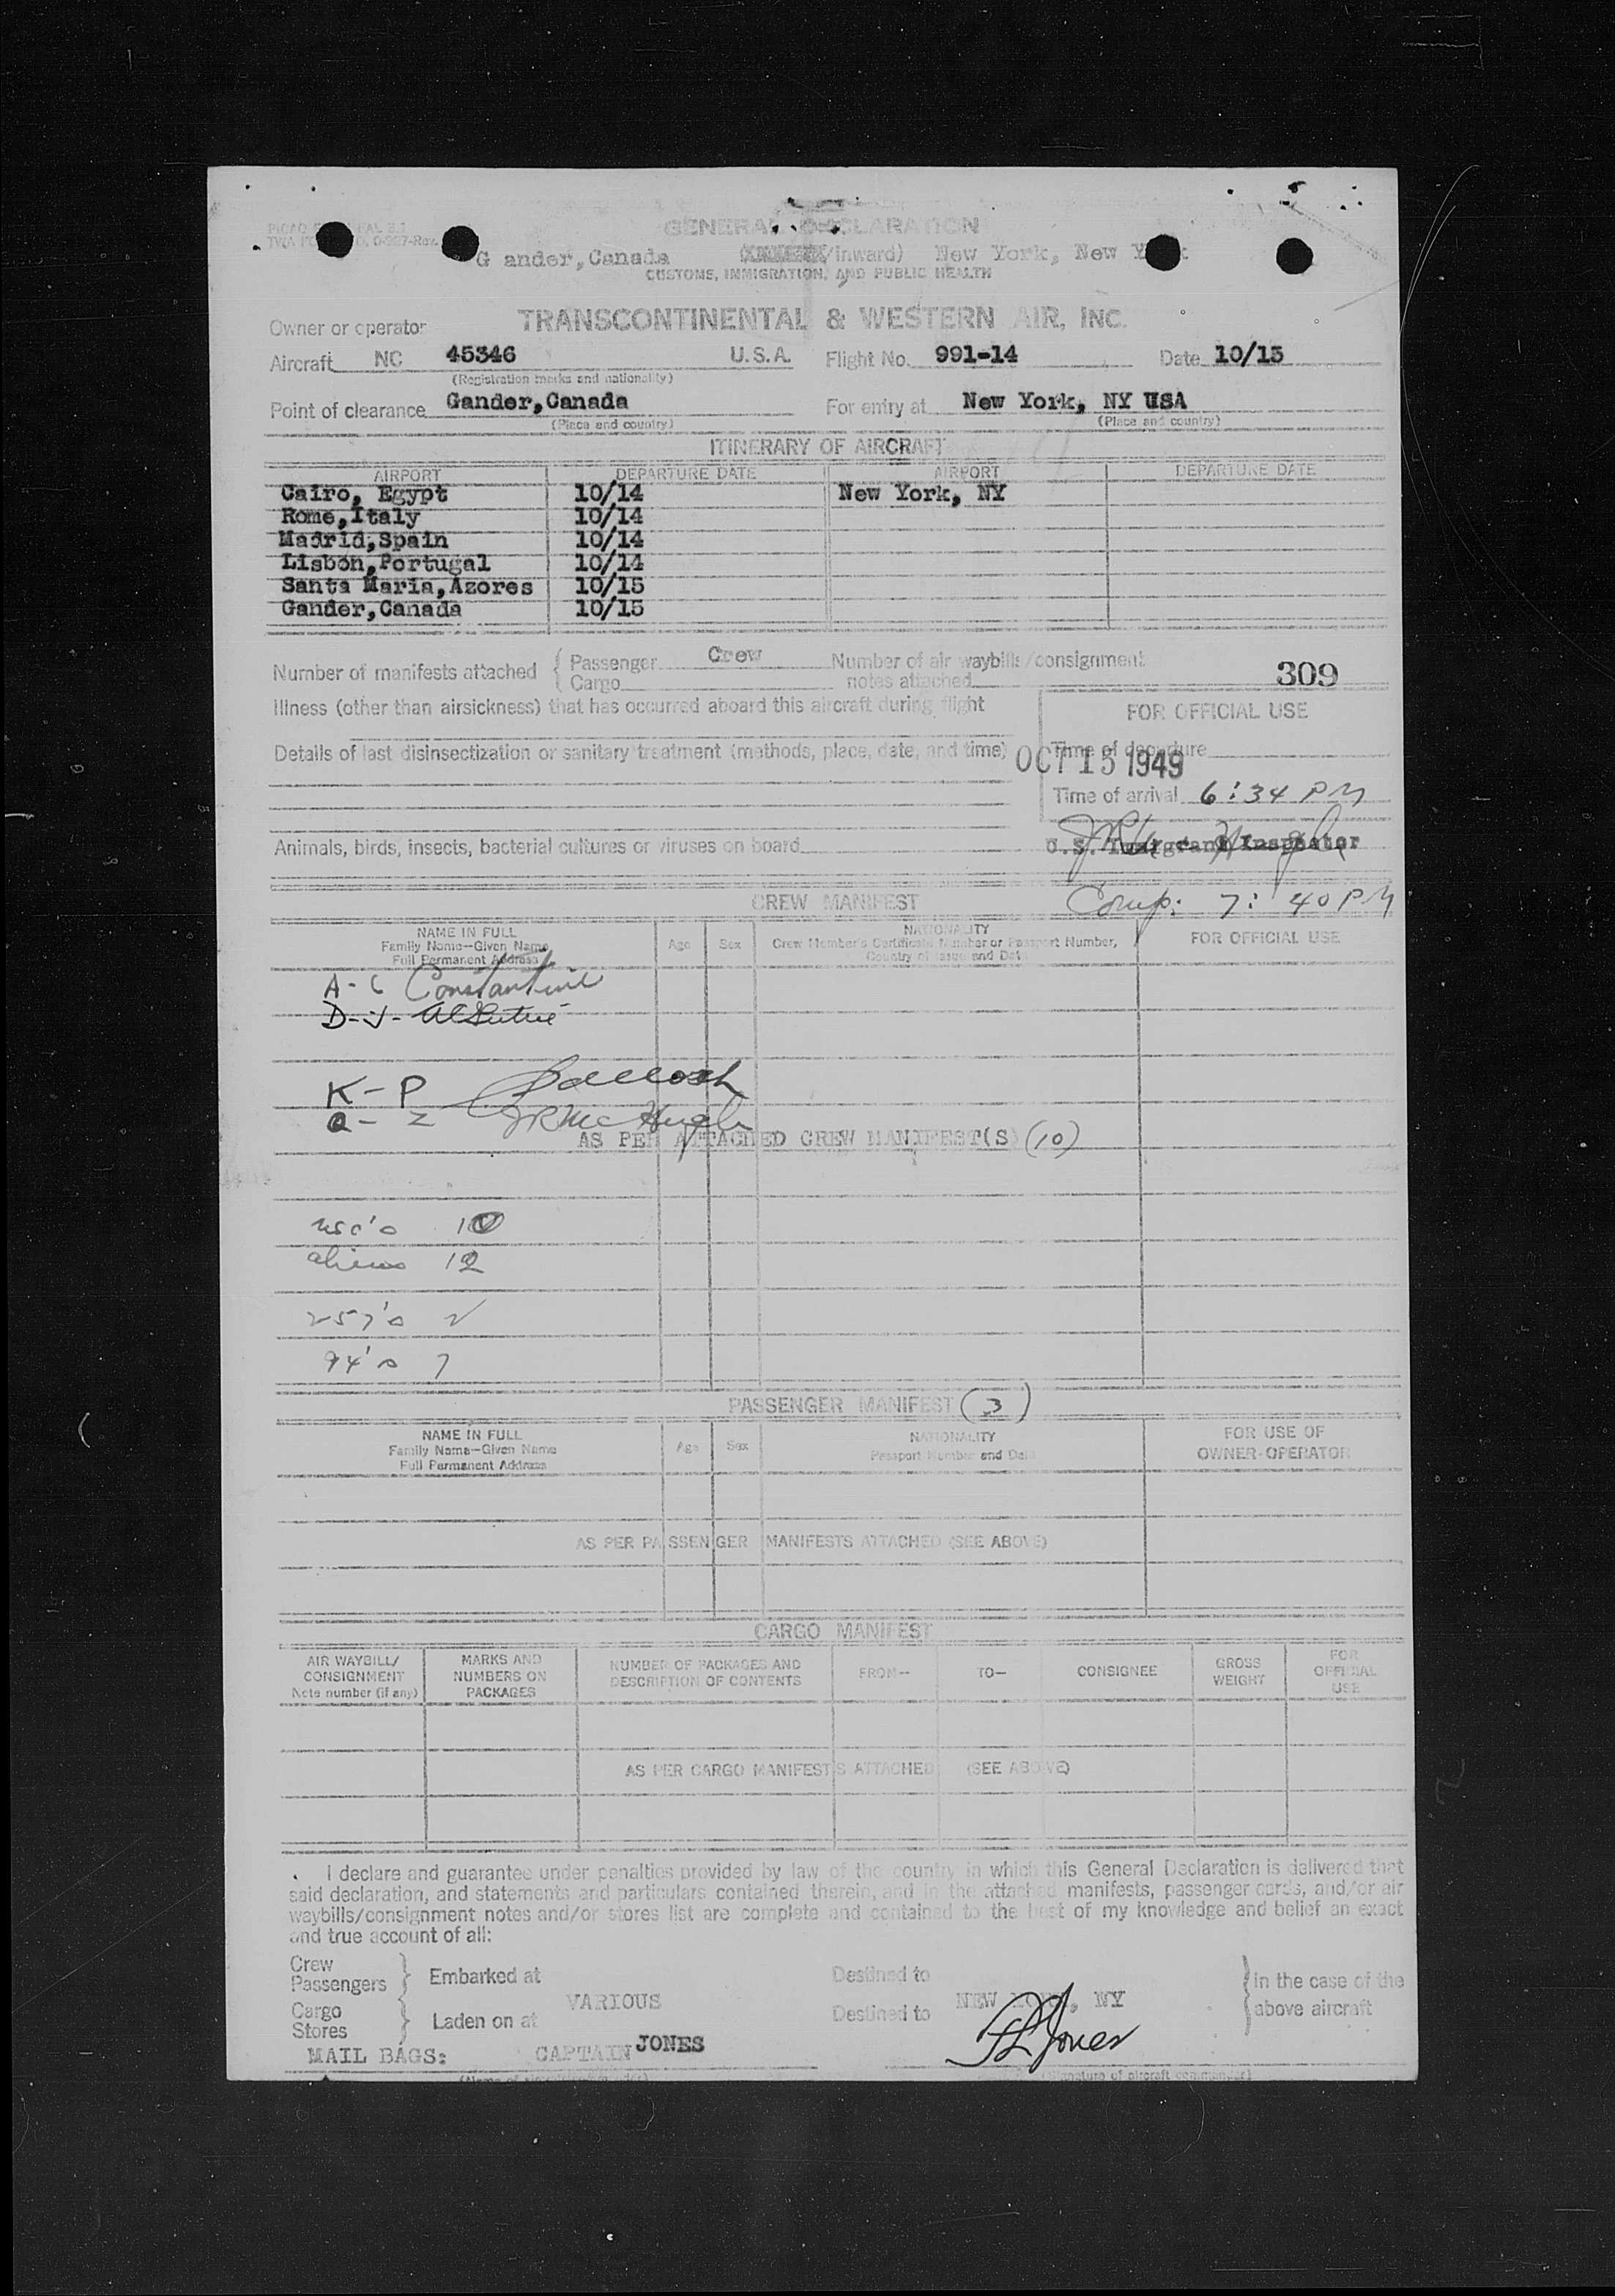 GENERAL DECLARATION
G ander,Canada /Inward) New York, New
CUSTOMS, IMMIGRATION, AND PUBLIC HEALTH
Owner or operator TRANSCONTINENTAL & WESTERN AIR, INC.
Aircraft NC 45346 U.S.A. Flight No. 991-14 Date 10/15
(Registration marks and nationality)
Point of clearance Gander,Canada For entry at New York, NY USA
(Place and country) (Place and country)
ITINERARY OF AIRCRAFT
AIRPORT DEPARTURE DATE AIRPORT DEPARTURE DATE
Cairo, Egypt 10/14 New York, NY
Rome,Italy 10/14
Madrid,Spain 10/14
Lisbon,Portugal 10/14
Santa Maria,Azores 10/15
Gander,Canada 10/15
Number of manifests attached { Passenger Crew Number of air waybills/consignment
Cargo notes attached
309
Illness (other than airsickness) that has occurred aboard this aircraft during flight
FOR OFFICIAL USE
Details of last disinsectization or sanitary treatment (methods, place, date, and time)
Time of departure
OCT 15 1949
Time of arrival 6:34 PM
Animals, birds, insects, bacterial cultures or viruses on board
U.S. Immigrant Inspector
Comp: 7:40 PM
CREW MANIFEST
NAME IN FULL
Family Name—Given Name
Full Permanent Address
Age Sex
NATIONALITY
Crew Member's Certificate Number or Passport Number,
Country of Issue and Date
FOR OFFICIAL USE
A - C Constantine
D - J -
K - P
Q - Z JR McHugh
AS PER ATTACHED CREW MANIFEST(S) (10)
usc's 10
aliens 12
257's
94's 7
PASSENGER MANIFEST (3)
NAME IN FULL
Family Name—Given Name
Full Permanent Address
Age Sex
NATIONALITY
Passport Number and Date
FOR USE OF
OWNER-OPERATOR
AS PER PASSENGER MANIFESTS ATTACHED (SEE ABOVE)
CARGO MANIFEST
AIR WAYBILL/
CONSIGNMENT
Note number (if any)
MARKS AND
NUMBERS ON
PACKAGES
NUMBER OF PACKAGES AND
DESCRIPTION OF CONTENTS
FROM—
TO—
CONSIGNEE
GROSS
WEIGHT
FOR
OFFICIAL
USE
AS PER CARGO MANIFESTS ATTACHED (SEE ABOVE)
I declare and guarantee under penalties provided by law of the country in which this General Declaration is delivered that
said declaration, and statements and particulars contained therein, and in the attached manifests, passenger cards, and/or air
waybills/consignment notes and/or stores list are complete and contained to the best of my knowledge and belief an exact
and true account of all:
Crew
Passengers } Embarked at Destined to } In the case of the
VARIOUS NEW YORK, NY
Cargo
Stores } Laden on at Destined to above aircraft
MAIL BAGS: CAPTAIN JONES Jones
(Signature of aircraft commander)